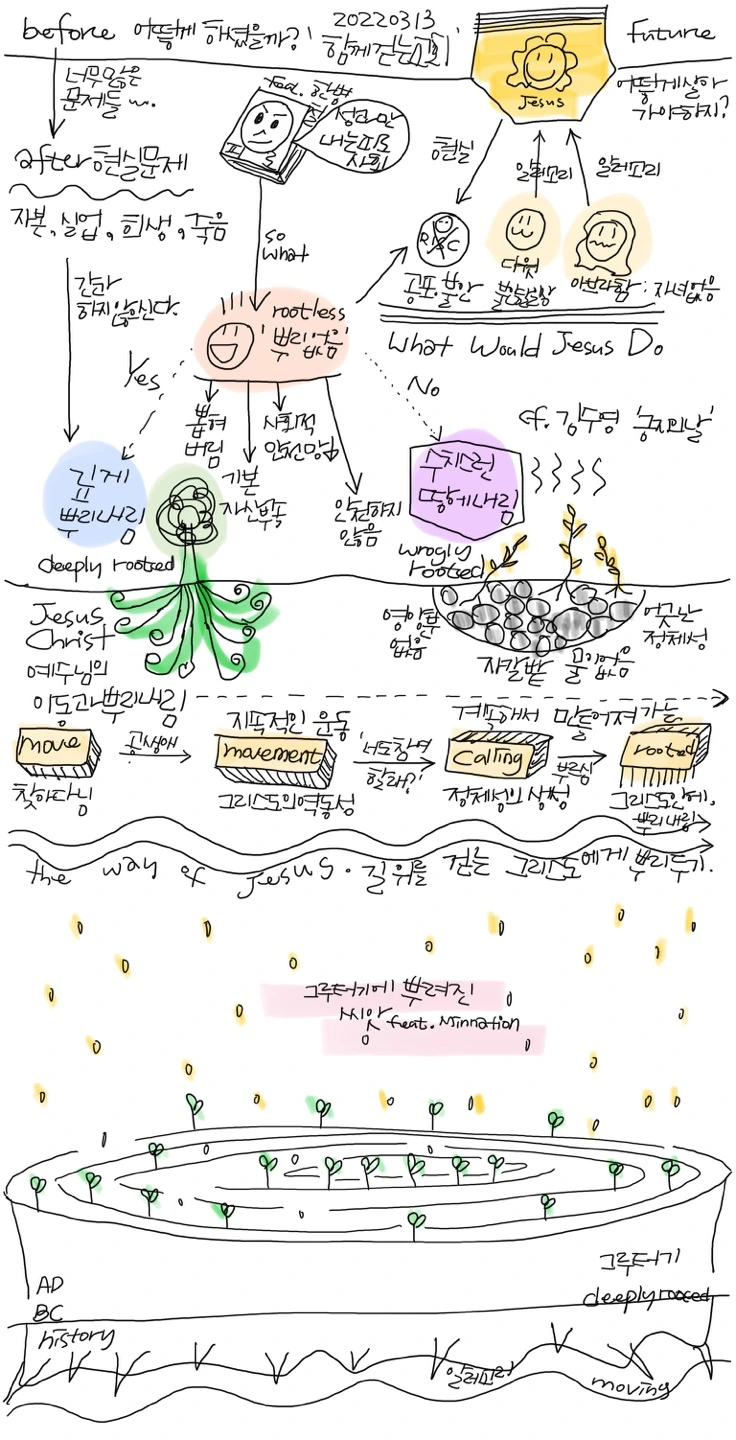 before 어떻게 하셨을까?
20220313
함께걷는교회
Future
너무많은
문제들 ...
after 현실문제
자본, 실업, 희생, 죽음
간과
하지 않으신다.
feat. 한병
성과만
내는피로
사회
so
what
Jesus
어떻게 살아
가야하지?
현실
알레고리
알레고리
공포, 불안
다윗
아브라함 : 자녀없음
What Would Jesus Do
rootless
'뿌리없음'
Yes
No
뽑혀
버림
기본
자산부족
사회적
안전망
안전하지
않음
cf. 김수영 '긍지의날'
깊게
뿌리내림
deeply rooted
수치스런
땅에내림
wrogly
rooted
Jesus
Christ
예수님의
이동과 뿌리내림
영양분
없음
자갈밭 물없음
어긋난
정체성
move
찾아다님
공생애
지속적인 운동
movement
그리스도의역동성
너도참여
할래?
계속해서 만들어져가는
calling
정체성의 상성
부르심
rooted
그리스도안에.
뿌리내림
the way of Jesus. 길위를 걷는 그리스도에게 뿌리두기.
그루터기에 뿌려진
씨앗 feat. Minnation
그루터기
deeply rooted
AD
BC
history
알레고리
moving